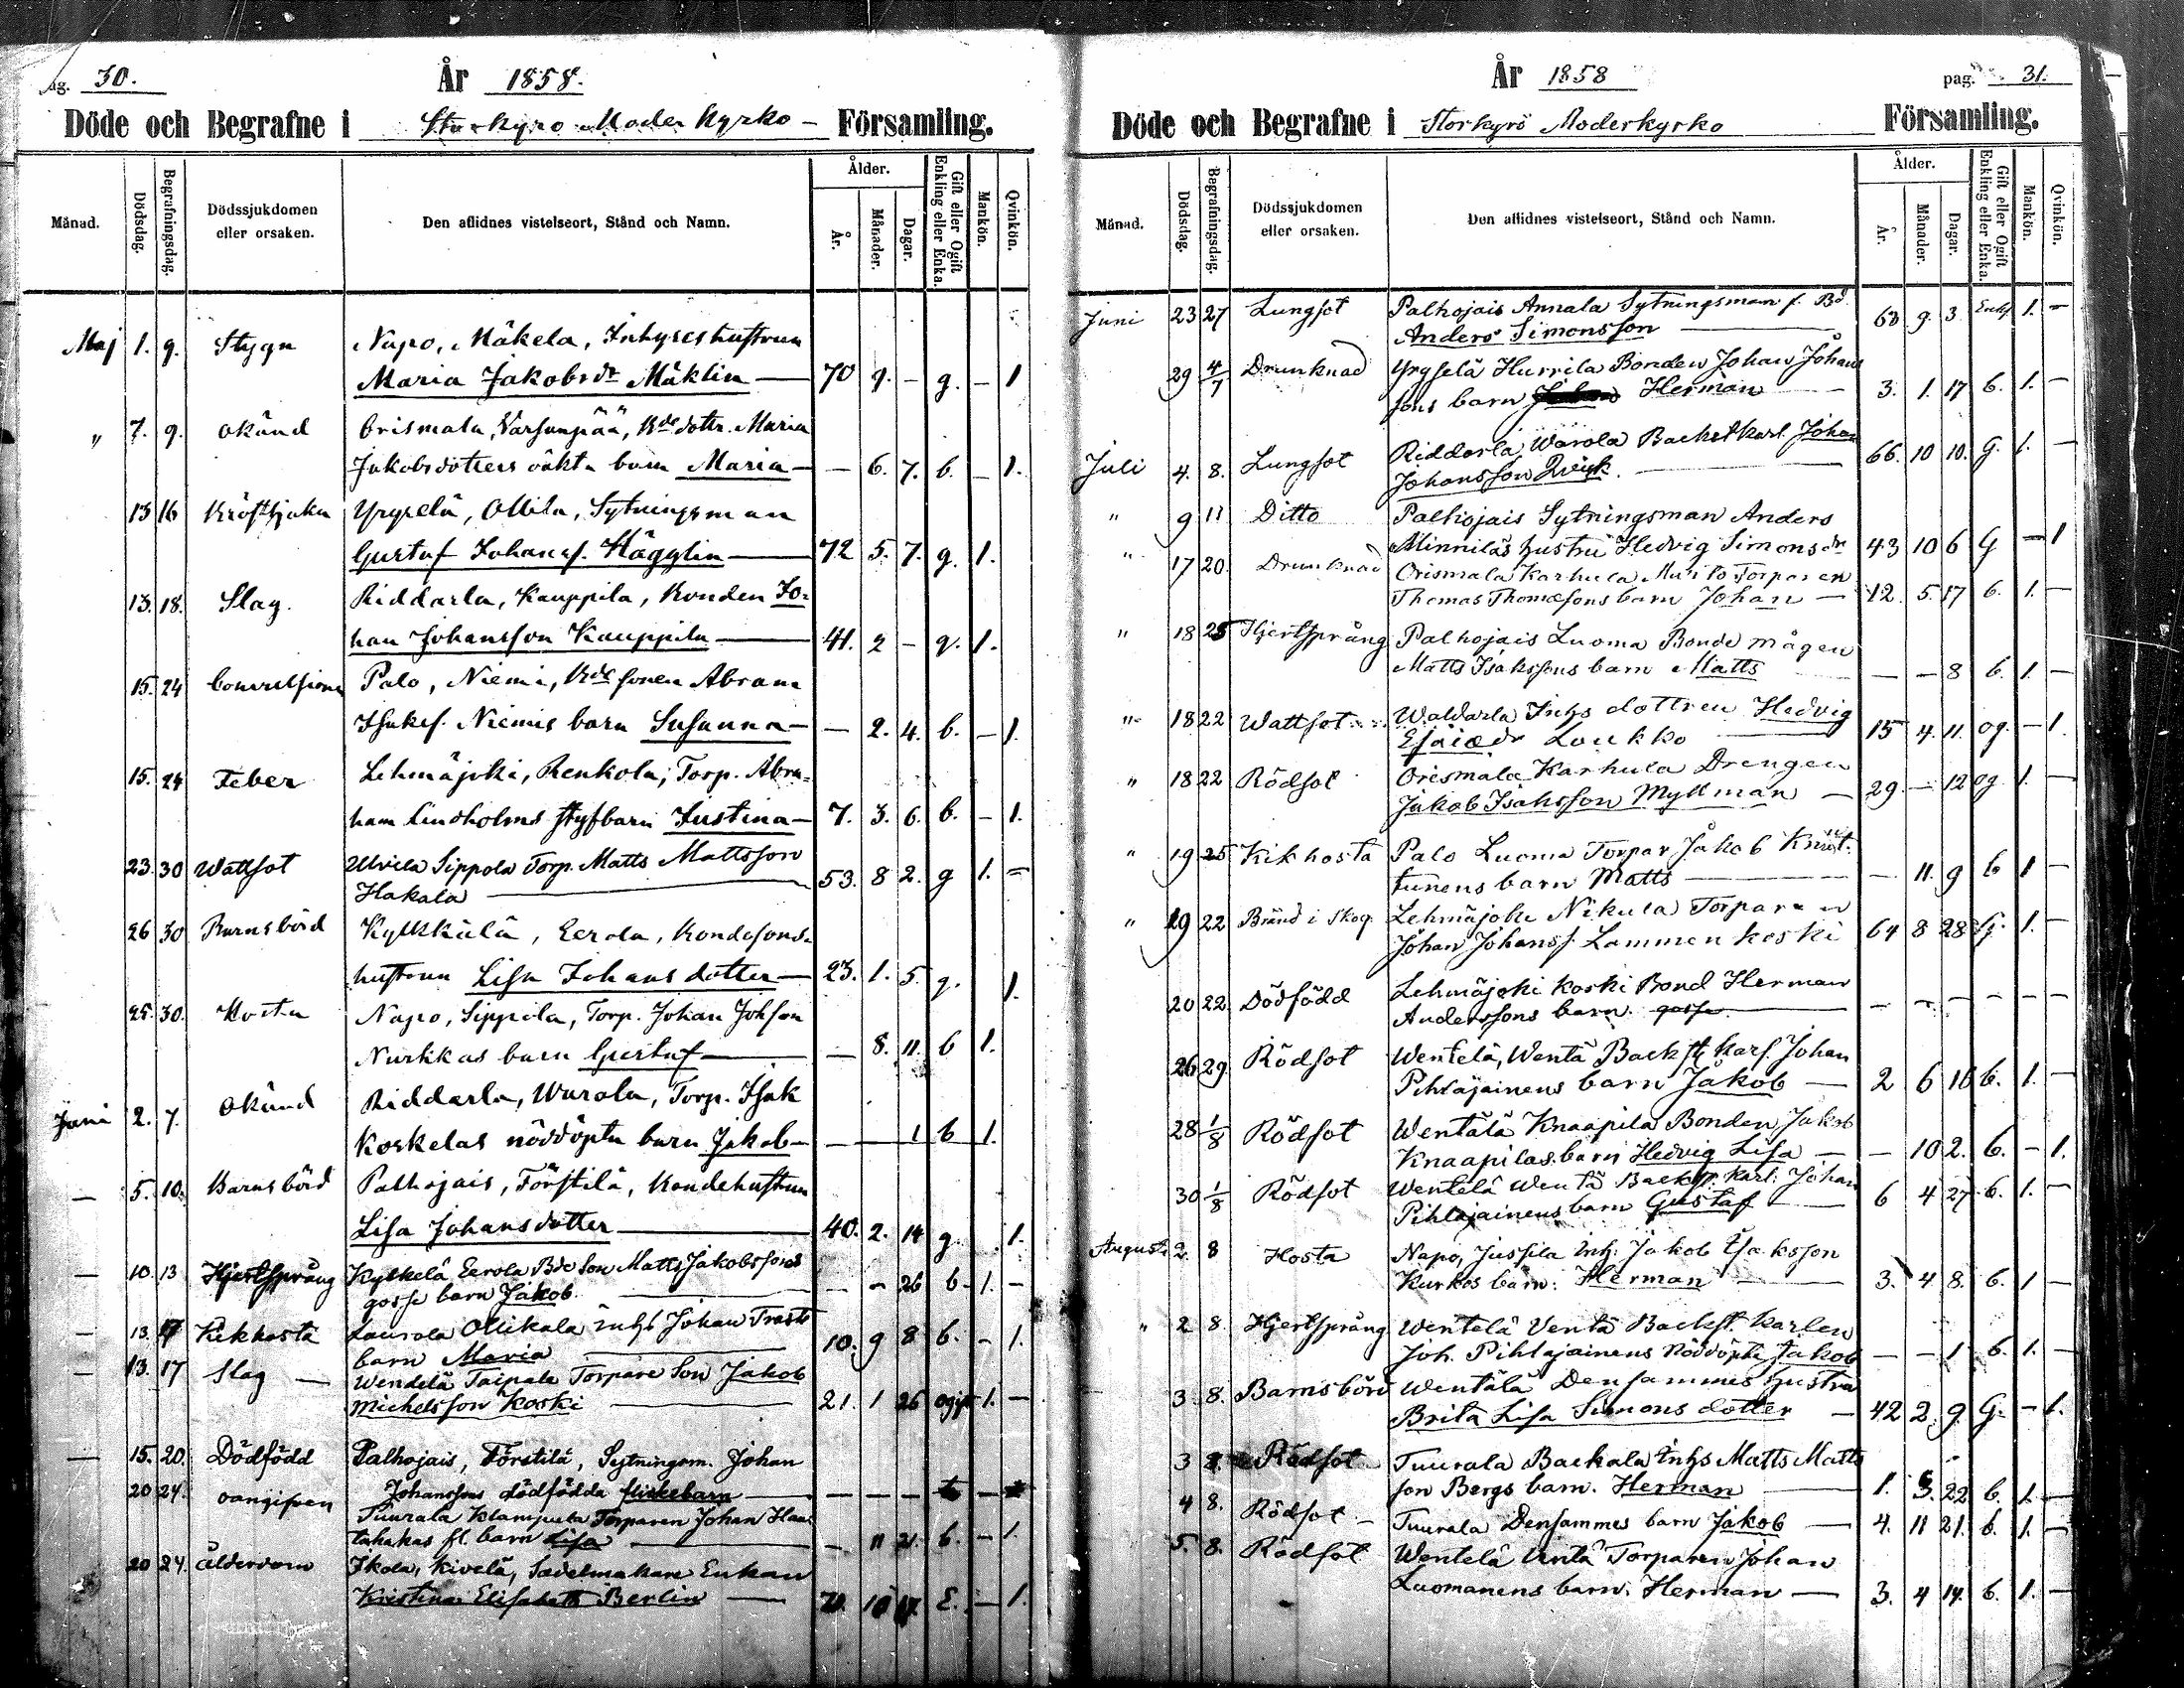 pag. 30.
År 1858.
Döde och Begrafne i Storkyro Moder Kyrko- Församling.
Månad. Dödsdag. Begrafningsdag. Dödssjukdomen eller orsaken. Den aflidnes vistelseort, Stånd och Namn. Ålder. År. Månader. Dagar. Gift eller Ogift Enkling eller Enka. Mankön. Qvinkön.
Maj 1. 9. Stygn Napo, Mäkelä, Inhyseshustrun
Maria Jakobsdr Mäklin 70 9. - g. - 1
" 7. 9. okänd Orismala, Varsanpää, Bde dottr. Maria
Jakobsdotters oäkta barn Maria - 6. 7. b. - 1.
13 16 Kräftsjuka Yryselä, Ollila, Sytningsman
Gustaf Johansf. Hägglin 72 5. 7. g. 1.
13. 18. Slag. Riddarla, Kauppila, Bonden Jo-
han Johansson Kauppila 41. 2 - g. 1.
15. 24 Convulsioner Palo, Niemi, Bde sonen Abram
Isaksf. Niemis barn Susanna - 2. 4. b. - 1.
15. 24 Feber Lehmäjoki, Renkola, Torp. Abra-
ham Lindholms styfbarn Justina 7. 3. 6. b. - 1.
23. 30 Wattsot Ulvila Sippola Torp. Matts Mattsson
Hakala 53. 8 2. g 1. -
26 30 Barnsbörd Kylkkälä, Eerola, Bondesons-
hustrun Lisa Johansdotter 23. 1. 5. g. 1.
25. 30. Hosta Napo, Sippola, Torp. Johan Johsson
Nurkkas barn Gustaf - 8. 11. b 1.
Juni 2. 7. okänd Riddarla, Warola, Torp. Isak
Koskelas nöddöpta barn Jakob - 1 b 1.
- 5. 10. Barnsbörd Palhojais, Förstilä, Bondehustrun
Lisa Johansdotter 40. 2. 14 g. 1.
- 10. 13 Hjertsprång Kylkelä Eerola Bde Son Matts Jakobssons
gosse barn Jakob - - 26 b - 1. -
- 13. 17 Kikhosta Laurola Ollikala Inhs Johan Trasts
barn Maria 10. 9 8 b. - 1.
- 13. 17 Slag Wendelä Taipale Torpare Son Jakob
Michelsson Koski 21. 1 26 ogift 1. -
- 15. 20. Dödfödd Palhojais, Förstilä, Sytningsm. Johan
Johanssons dödfödda flickebarn - - -
20 24. oangifven Tuurala Torparen Johan
barn Lisa - 11 21. b. - 1.
20 24. ålderdom Ikola, Kivelä, Sadelmakare Enkan
Kristina Elisabeth Berlin 10 E. - 1.
År 1858
pag. 31.
Döde och Begrafne i Storkyrö Moderkyrko Församling.
Månad. Dödsdag. Begrafningsdag. Dödssjukdomen eller orsaken. Den aflidnes vistelseort, Stånd och Namn. Ålder. År. Månader. Dagar. Gift eller Ogift Enkling eller Enka. Mankön. Qvinkön.
Juni 23 27 Lungsot Palhojais Annala Sytningsman f. Bd.
Anders Simonsson 68 9. 3. Enkl 1. -
29 4/7 Drunknad Yryselä Hurrila Bonden Johan Johans
sons barn Herman 3. 1. 17 b. 1. -
Juli 4. 8. Lungsot Riddarla, Warola Backstkarl Johan
Johansson Qvick. 66. 10 10. g. 1. -
" 9 11 Ditto Palhojais Sytningsman Anders
Minniläs hustru Hedvig Simonsdr 43 10 6 G - 1
" 17 20. Drunknad Orismala Karhula Torparen
Thomas Thomæsons barn Johan 12. 5. 17 b. 1. -
" 18 25 Hjertsprång Palhojais Luoma Bonde mågen
Matts Isakssons barn Matts - - 8 b. 1. -
" 18 22 Wattsot Waldarla Inhs dottren Hedvig
Esaiædr Loukko 15 4. 11. og. - 1.
" 18 22 Rödsot Orismala Karhula Drengen
Jakob Isaksson Myllman 29. - 12 og. 1. -
" 19 25 Kikhosta Palo Luoma Torpar Jakob Knut-
tunens barn Matts - 11. 9 b 1 -
" 19 22 Bränd i skog. Lehmäjoki Nikula Torparen
Johan Johansf. Lammenkoski 64 8 28 G. 1. -
20 22 Dödfödd Lehmäjoki Koski Bond Herman
Anderssons barn gosse - - - - - -
26 29. Rödsot Wentelä, Wentä Backst. karl. Johan
Pihlajainens barn Jakob 2 6 16 b. 1. -
28 1/8 Rödsot Wentälä Knaapila Bonden Jakob
Knaapilas barn Hedvig Lisa - 10 2. b. - 1.
30 1/8 Rödsot Wentelä Wentä Backst. karl. Johan
Pihlajainens barn Gustaf 6 4 27 b. 1. -
Augusti 2. 8 Hosta Napo, Jussila Inh. Jakob Isaksson
Kurkos barn: Herman 3. 4 8. b. 1 -
" 2 8. Hjertsprång Wentelä Ventä Backst. Karlen
Joh. Pihlajainens Nöddöpte Jakob - - 1 b. 1. -
3 8. Barnsbörd Wentälä Densammes hustru
Brita Lisa Simons dotter 42 2. 9 G. - 1.
3 8. Rödsot Tuurala Backala Inhs Matts Matts
son Bergs barn. Herman 1. 5. 22 b. 1. -
4 8. Rödsot Tuurala Densammes barn Jakob 4. 11 21. b. 1. -
5. 8. Rödsot Wentelä Ventä Torparen Johan
Luomanens barn. Herman 3. 4 14. b. 1. -